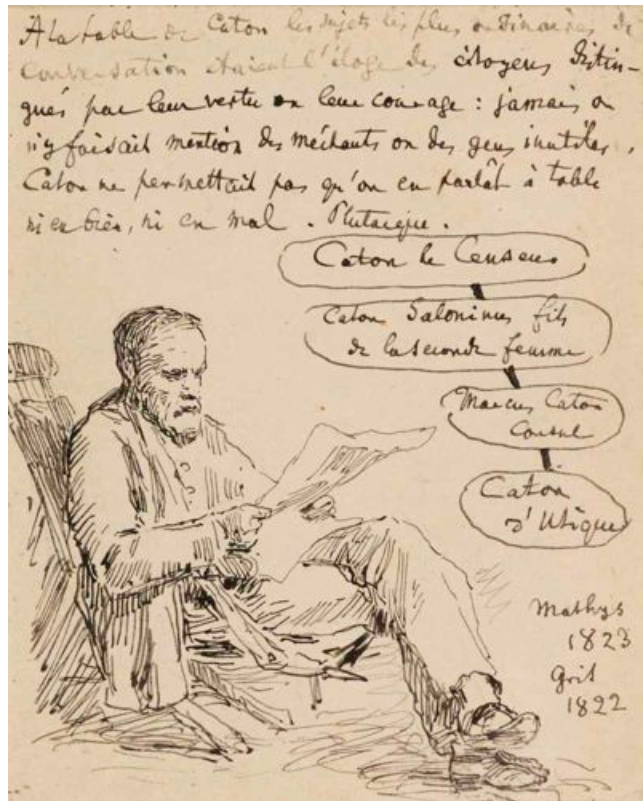 A la table de Caton les sujets les plus ordinaires de
conversation étaient l'éloge des citoyens distin-
gués par leur vertu ou leur courage : jamais on
n'y faisait mention des méchants ou des gens inutiles,
Caton ne permettait pas qu'on en parlât à table
ni en bien, ni en mal. Plutarque.
Caton le Censeur
Caton Saloninus fils
de la seconde femme
Marcus Caton
Consul
Caton
d'Utique
Mathys
1823
1822